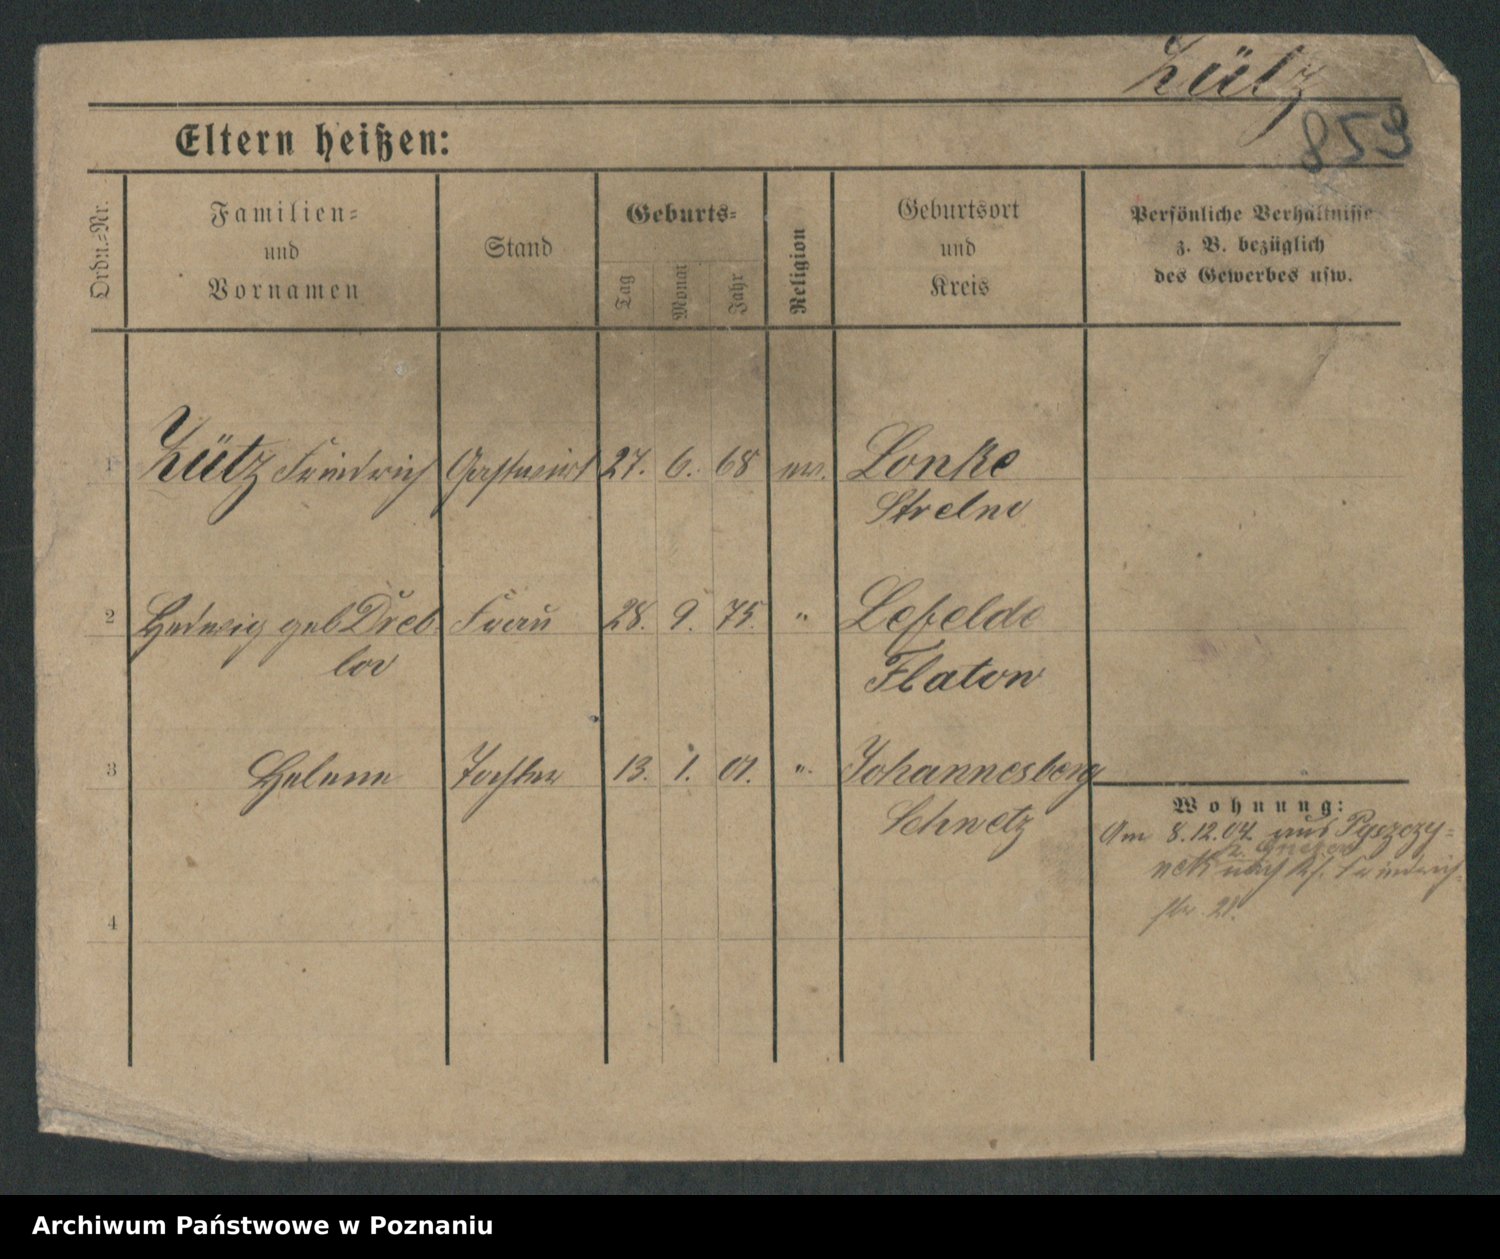 Lütz
859
Eltern heißen:
Ordn.=Nr.
Familien=
und
Vornamen
Stand
Geburts=
Tag
Monat
Jahr
Religion
Geburtsort
und
Kreis
Persönliche Verhältnisse
z. B. bezüglich
des Gewerbes usw.
1 Lütz Friedrich Gastwirt 27. 6. 68 ev. Lonke
Strelno
2 Hedwig geb Dreb- Frau 28. 9. 75. " Lefelde
low
Flatow
3 Helene Tochter 13. 1. 01. " Johannesberg
Schwetz
Wohnung:
Am 8.12.04. aus Pyszczy=
nek
nach Friedrich-
str. 28.
4
Archiwum Państwowe w Poznaniu